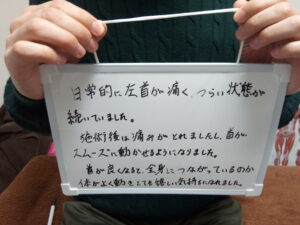 日常的に左首が痛く、つらい状態が
続いていました。
施術後は痛みがとれましたし、首が
スムーズに動かせるようになりました。
首が良くなると、全身につながっているのか
体がよく動きとても嬉しい気持ちになれました。